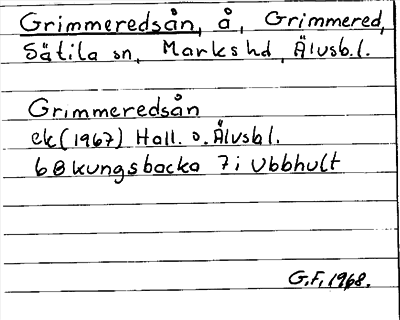 Grimmeredsån, å, Grimmered,
Sätila sn, Marks hd, Älvsb.l.
Grimmeredsån
ek (1967) Hall. o. Älvsbl.
6B Kungsbacka 7i Ubbhult
G.F. 1968.